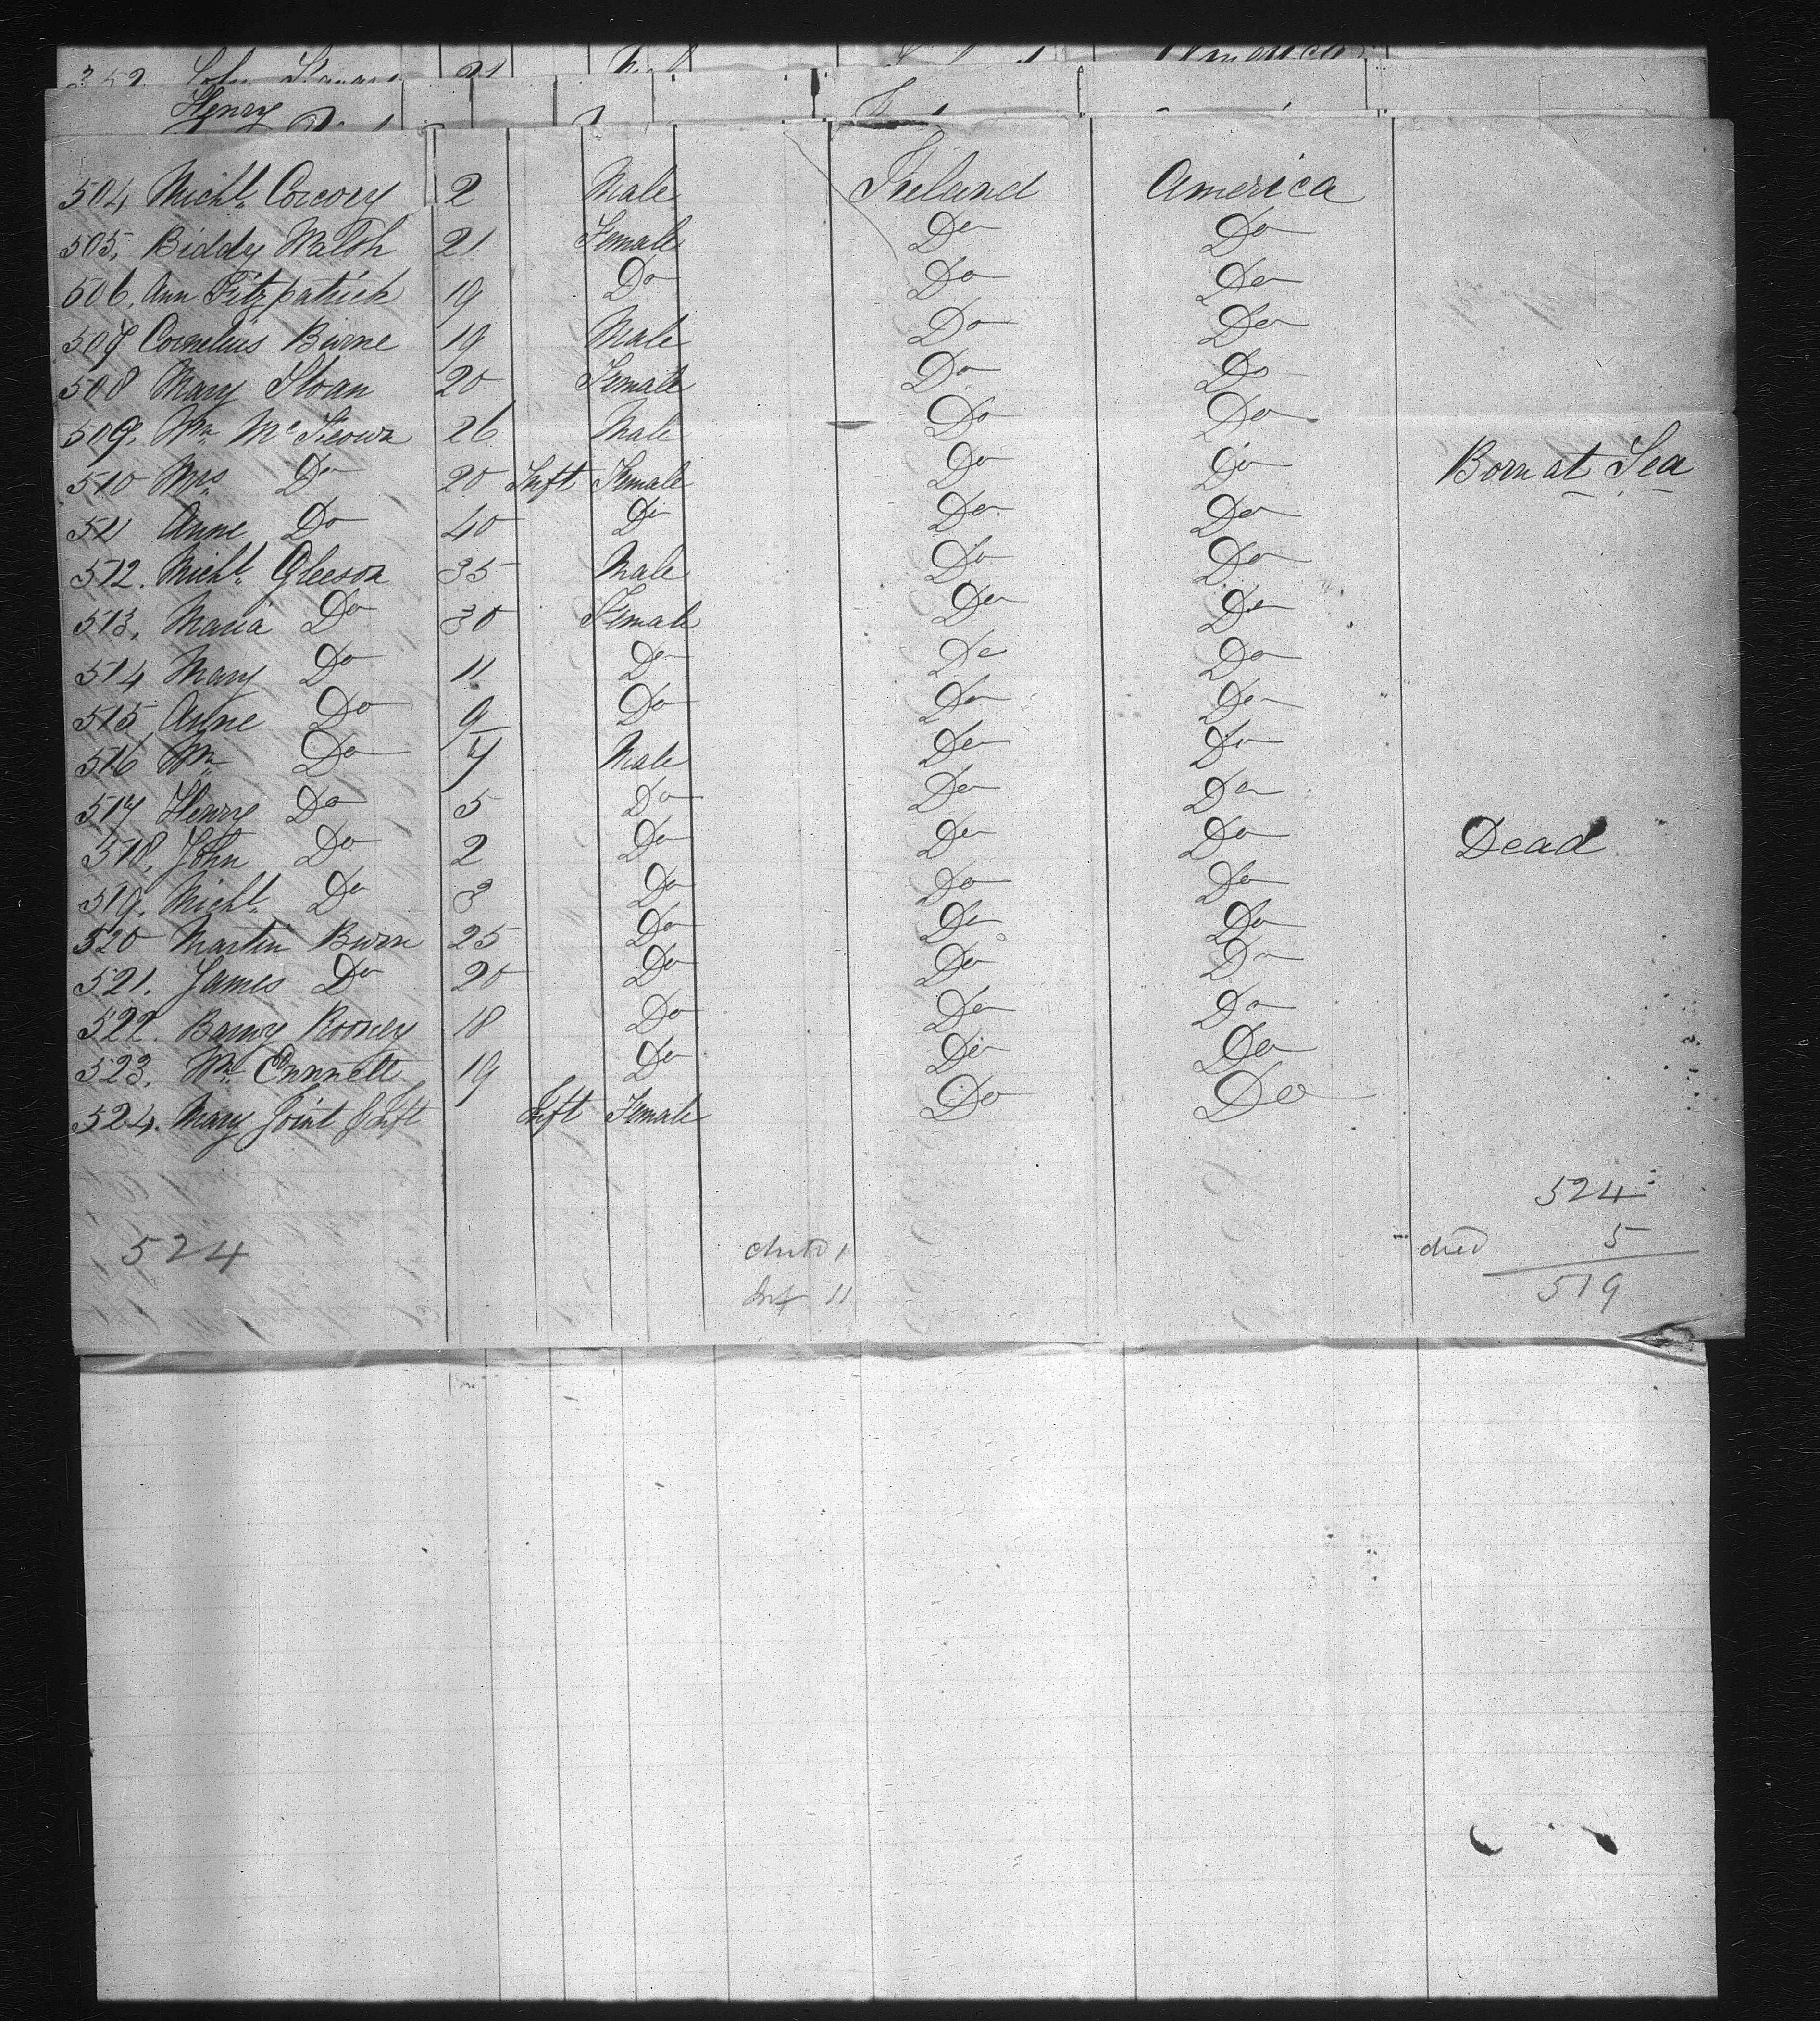 Henry
504 Michl. Corcory 2 Male Ireland America
505. Biddy Walsh 21 Female Do Do
506. Ann Fitzpatrick 19 Do Do Do
507 Cornelius Birne 19 Male Do Do
508 Mary Sloan 20 Female Do Do
509. Wm McKeown 26 Male Do Do
510 Mrs Do 20 Inft Female Do Do Born at Sea
511 Anne Do 40 Do Do Do
512. Michl. Gleeson 35 Male Do Do
513. Maria Do 30 Female Do Do
514 Mary Do 11 Do Do Do
515 Anne Do 9 Do Do Do
516 Wm Do 7 Male Do Do
517 Henry Do 5 Do Do Do
518. John Do 2 Do Do Do Dead
519. Michl. Do 3 Do Do Do
520 Martin Burne 25 Do Do Do
521. James Do 20 Do Do Do
522. Barny Rooney 18 Do Do Do
523. Wm Connnell 19 Do Do Do
524. Mary Joint Inft Inft Female Do Do
524
524 died 5
Inf 11 519